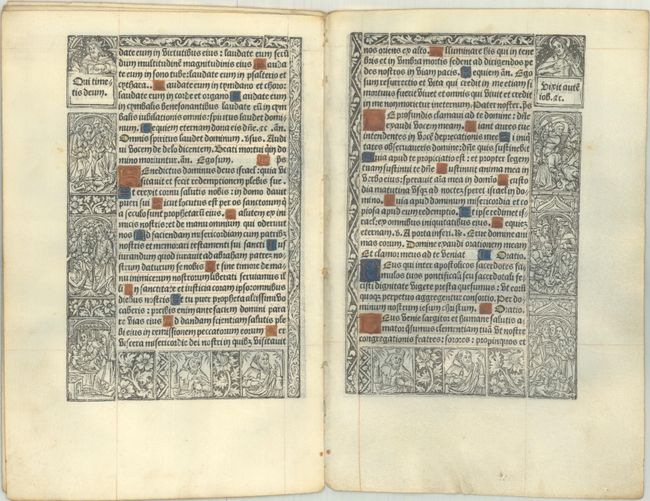 Qui time-
tis deum.
date eum in virtutibus eius: laudate eum secū
dum multitudinē magnitudinis eius Lauda
te eum in sono tube: laudate eum in psalterio et
cythara. Laudate eum in tympano et choro:
laudate eum in cordis et organo Laudate eum in
cymbalis benesonantibus laudate eū in cym
balis iubilationis omnis spiritus laudet domi
num. Requiem eternam dona eis dñe. ꝛc. añ.
Omnis spiritus laudet dominum.
vi vocem de celo dicentem. Beati mortui qui in do
mino moriuntur. añ. Ego sum. ps
Benedictus dominus deus israel: quia vi
sitauit et fecit redemptionem plebis sue.
Et erexit cornu salutis nobis in domo dauit
pueri sui Sicut locutus est per os sanctorum q
a seculo sunt prophetarū eius. Salutem ex ini
micis nostris et de manu omnium qui oderunt
nos Ad faciendam misericordiam cum patribꝰ
nostris et memorari testamenti sui sancti Ius
iurandum quod iurauit ad abraham patrem
nostrum daturum se nobis Ut sine timore de ma
nu inimicorum nostrorum liberati seruiamus il
li In sanctitate et iusticia coram ipso omnibus
diebus nostris Et tu puer propheta altissimi vo
caberis: preibis enim ante faciem domini para
re vias eius Ad dandam scientiam salutis ple
bi eius in remissionem peccatorum eorum Per
viscera misericordie dei nostri in quibꝰ visitauit
nos oriens ex alto. Illuminare his qui in tene
bris et in vmbra mortis sedent ad dirigendos pe
des nostros in viam pacis. Requiem añ. Ego
sum resurrectio et vita qui credit in me etiam si
mortuus fuerit viuet et omnis qui viuit et credit
in me non morietur in eternum. Pater noster. ps
De profundis clamaui ad te domine: dñe
exaudi vocem meam. Fiant aures tue
intendentes in vocē deprecationis mee Si ini
tates obseruaueris domine: dñe quis sustinebit
Quia apud te propiciatio est: et propter legem
tuam sustinui te dñe Sustinuit anima mea in
verbo eius: sperauit aīa mea in domīo A custo
dia matutina vsqꝫ ad noctē: speret israel in do
mino. Quia apud dominum misericordia et co
piosa apud eum redemptio. Et ipse redimet is
rael: ex omnibus iniquitatibus eius. Requiē
eternam. v. A porta inferi. R. Erue domine ani
mas eorum. Domine exaudi orationem meam
Et clamor meus ad te veniat Oratio.
Deus qui inter apostolicos sacerdotes fa
mulos tuos pontificali seu sacerdotali fe
cisti dignitate vigere presta quesumus: vt eorū
quoqꝫ perpetuo aggregentur consortio. Per do
minum nostrum iesum christum. Oratio.
Deus venie largitor: et humane salutis a
mator: quesumus clementiam tuā vt nostre
congregationis fratres: sorores: propinquos et
Vixit autē
iob. ꝛc.